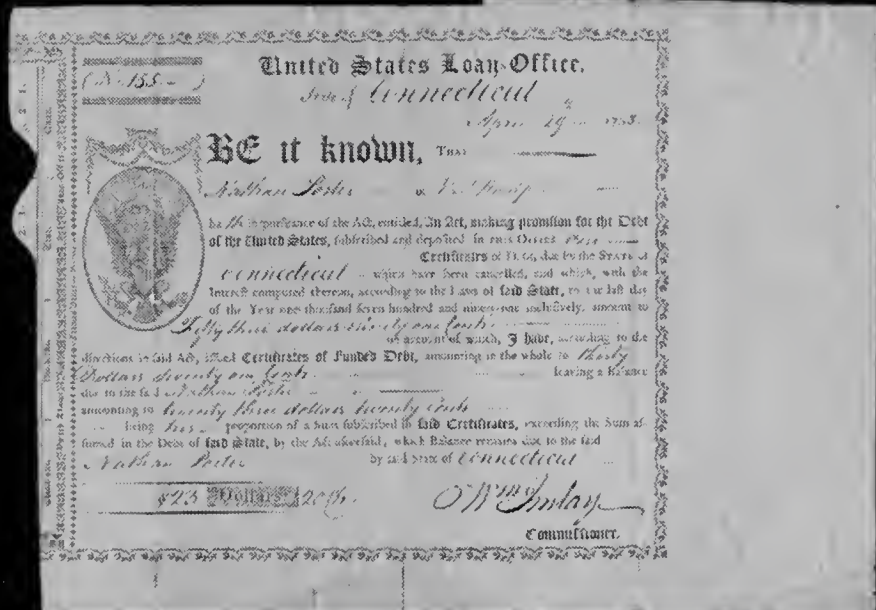 United States Loan-Office.
(No. 155)
State of Connecticut
April 29
BE it known, THAT
Nathan Porter of
hath in pursuance of the Act, entitled, An Act, making provision for the Debt
of the United States, subscribed and deposited in this Office
Certificates of Debt, due by the State of
Connecticut which have been cancelled, and which, with the
Interest computed thereon, according to the Laws of said State, to the last day
of the Year one thousand seven hundred and ninety-one inclusively, amount to
Fifty three dollars ninety one Cents
on account of which, I have, according to the
directions in said Act, issued Certificates of Funded Debt, amounting in the whole to thirty
Dollars seventy one Cents leaving a Balance
due to the said Nathan Porter
amounting to twenty three dollars twenty Cents
being his proportion of a Sum subscribed in said Certificates, exceeding the Sum as-
sumed in the Debt of said State, by the Act aforesaid, which Balance remains due to the said
Nathan Porter by said State of Connecticut
$23 Dollars 20
Wm Imlay
Commissioner.